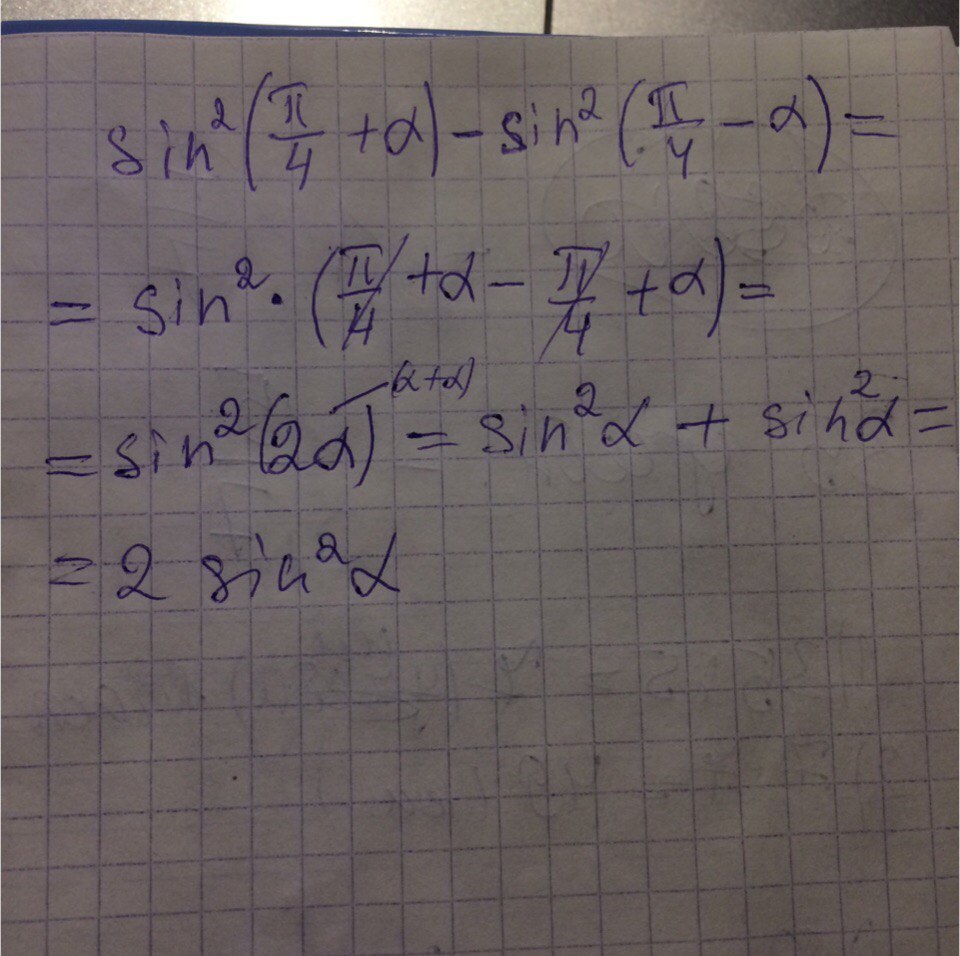 sin²(π/4 + α) − sin²(π/4 − α) =
= sin² · (π/4 + α − π/4 + α) =
(α+α)
= sin²(2α) = sin²α + sin²α =
= 2 sin²α